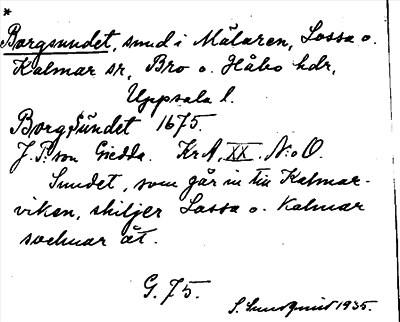 *
Borgsundet, sund i Mälaren, Lossa o.
Kalmar sr, Bro o. Håbo hdr,
Uppsala l.
Borgsündet 1675.
J. P:son Giedda. KrA, XX. N:o O.
Sundet, som går in till Kalmar-
viken, skiljer Lossa o. Kalmar
socknar åt.
G. 75.
S. Sundquist 1935.